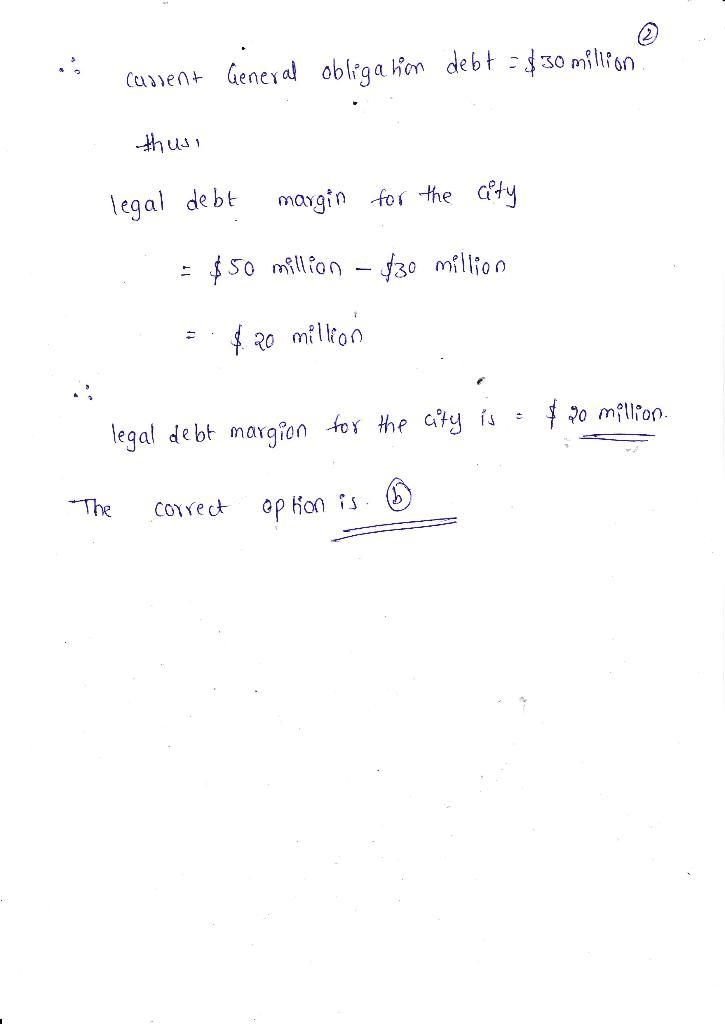 ②
∴ current General obligation debt = $30 million
thus,
legal debt margin for the city
= $50 million - $30 million
= $20 million
∴
legal debt margion for the city is = $20 million.
The correct option is ⓑ